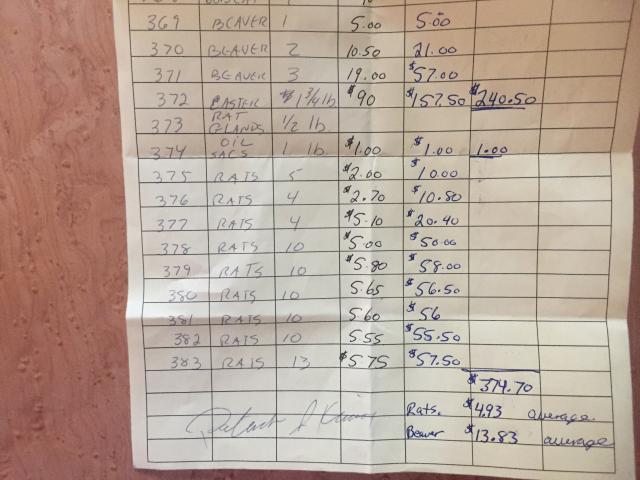 369 BEAVER 1 5.00 5.00
370 BEAVER 2 10.50 21.00
371 BEAVER 3 19.00 $57.00
372 CASTER 1 3/4 lb $90 $157.50 $240.50
373 RAT GLANDS 1/2 lb.
374 OIL SACS 1 lb. $1.00 $1.00 1.00
375 RATS 5 $2.00 $10.00
376 RATS 4 $2.70 $10.80
377 RATS 4 $5.10 $20.40
378 RATS 10 $5.00 $50.00
379 RATS 10 $5.80 $58.00
380 RATS 10 5.65 $56.50
381 RATS 10 5.60 $56
382 RATS 10 5.55 $55.50
383 RATS 13 $5.75 $57.50
$374.70
Rats. $4.93 average.
Beaver $13.83 average